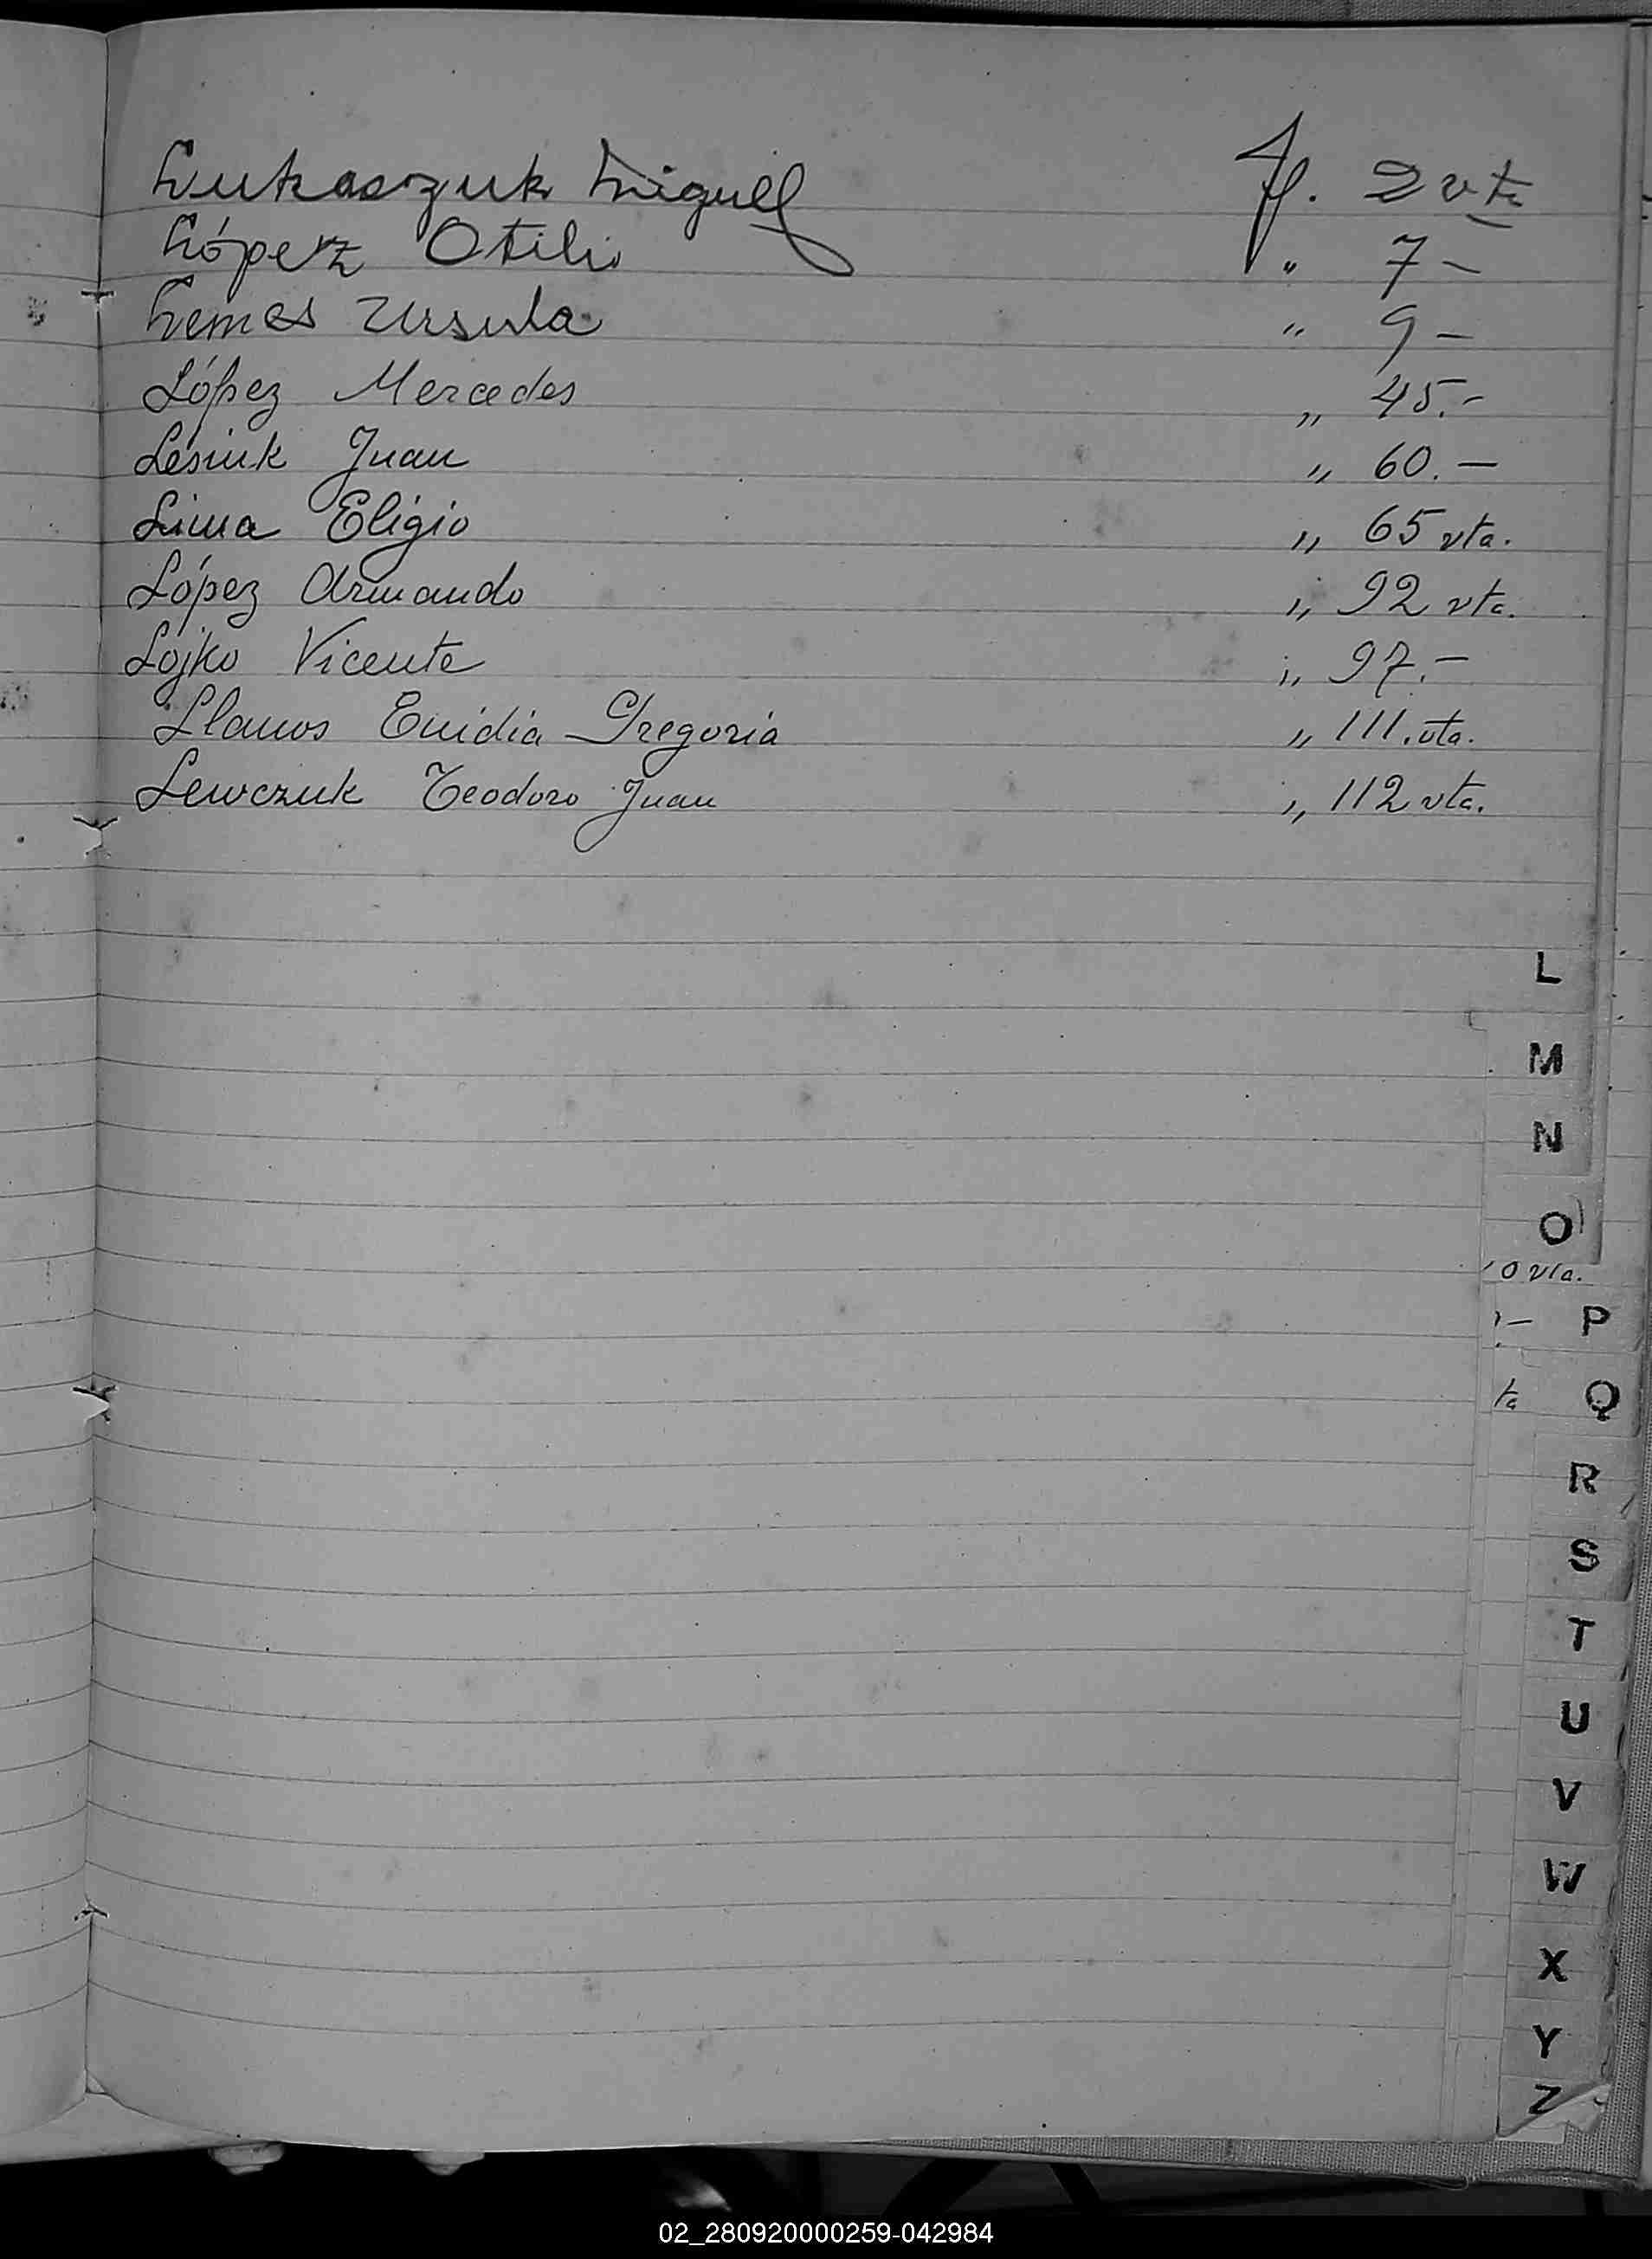 Lukaszuk Miguel f. 2 vta
López Otilio " 7-
Lemes Ursula " 9-
López Mercedes " 45.-
Lesiuk Juan " 60.-
Lima Eligio " 65 vta.
López Armando " 92 vta.
Lojko Vicente " 97.-
Llanos Enidia Gregoria " 111.vta.
Lewczuk Teodoro Juan " 112 vta.
L
M
N
O
0 vta.
P
ta Q
R
S
T
U
V
W
X
Y
Z
02_280920000259-042984